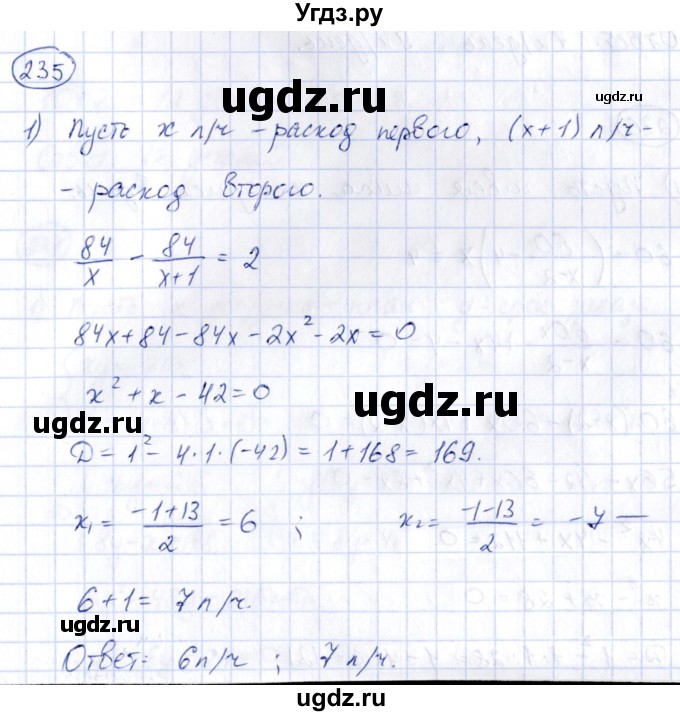 Угдз.ру
235
ugdz.ru
1) Пусть x л/ч – расход первого, (x+1) л/ч –
ugdz.ru
– расход второго.
84/x – 84/(x+1) = 2
ugdz.ru
84x+84–84x–2x²–2x=0
x²+x–42=0
ugdz.ru
ugdz.ru
D=1²–4·1·(–42)=1+168=169.
x₁=(–1+13)/2=6 ; x₂=(–1–13)/2=–7 —
6+1=7 л/ч.
ugdz.ru
Ответ: 6л/ч ; 7 л/ч.
ugdz.ru